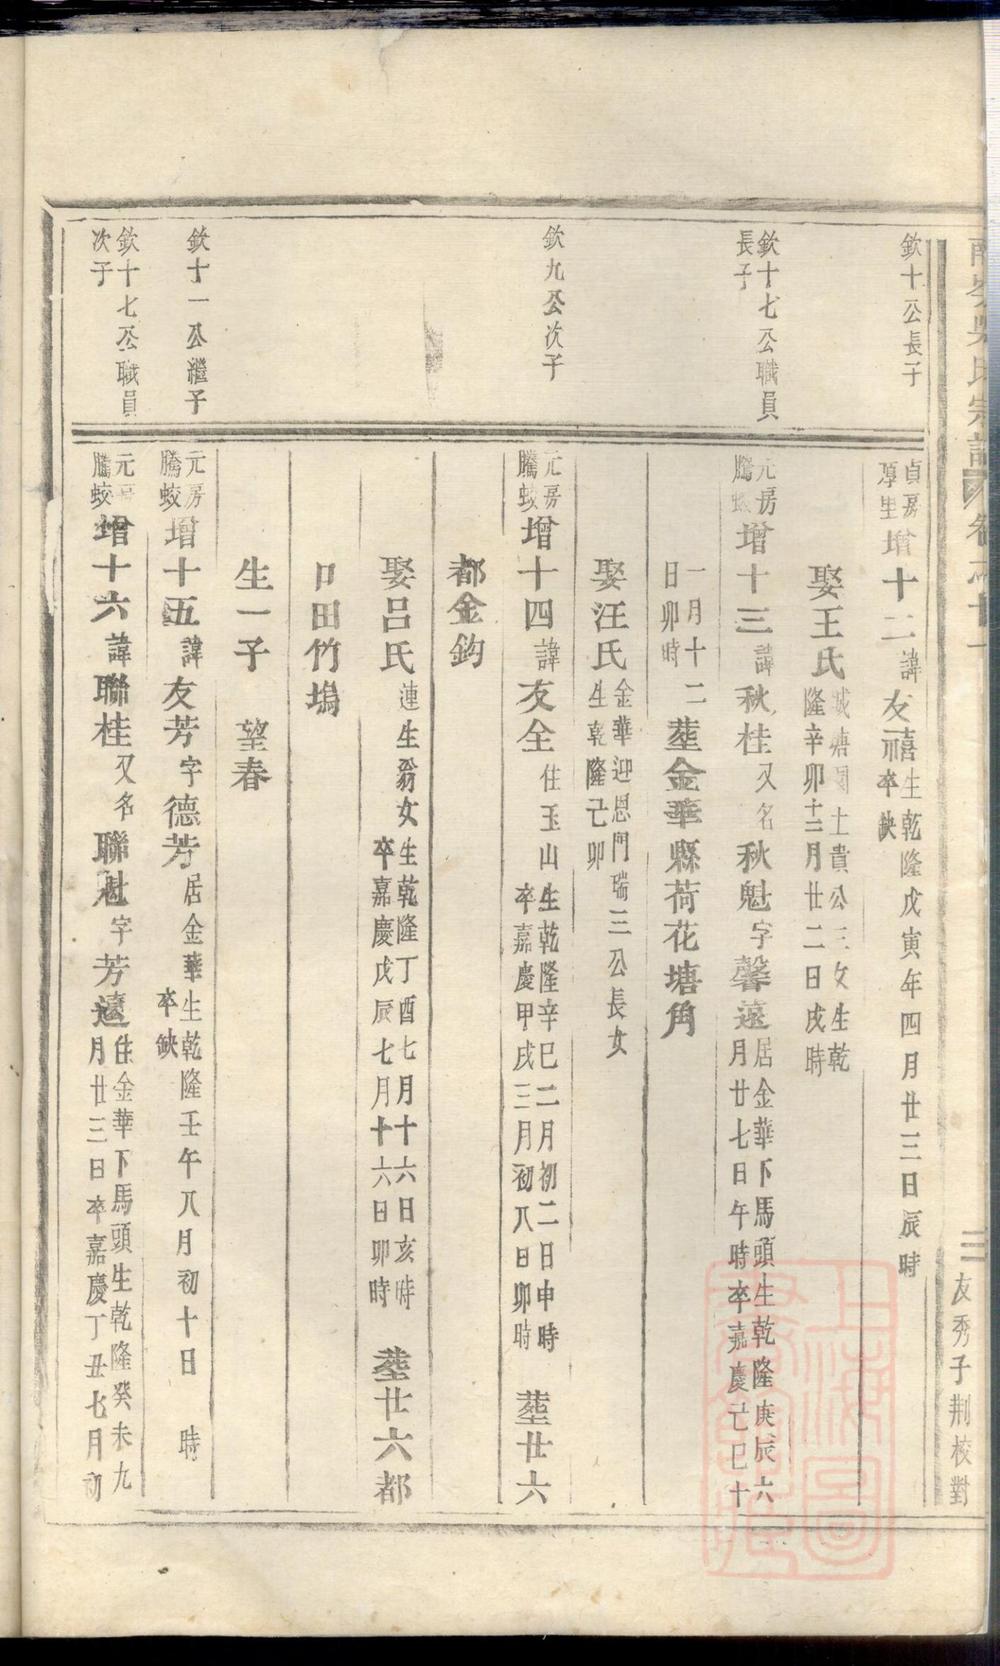 吳氏宗譜 卷之十一
三
友秀子荆校對
欽十公長子
貞房
厚生
增十二諱友禧
生乾隆戊寅年四月廿三日辰時
卒缺
娶王氏
士貴公三女生乾
隆辛卯十二月廿二日戌時
欽十七公職員
長子
元房
騰蛟
增十三諱秋桂又名秋魁字馨遠
居金華下馬頭生乾隆庚辰六
月廿七日午時卒嘉慶己巳十
一月十二
日卯時
塟金華縣荷花塘角
娶汪氏
金華迎恩門瑞三公長女
生乾隆己卯
欽九公次子
元房
騰蛟
增十四諱友全
住玉山生乾隆辛巳二月初二日申時
卒嘉慶甲戌三月初八日卯時
塟廿六
都金鈎
娶呂氏
連生翁女生乾隆丁酉七月十六日亥時
卒嘉慶戊辰七月十六日卯時
塟廿六都
田竹塢
生一子 望春
欽十一公繼子
元房
騰蛟
增十五諱友芳字德芳
居金華生乾隆壬午八月初十日 時
卒缺
欽十七公職員
次子
元房
騰蛟
增十六諱聯桂又名聯魁字芳遠
住金華下馬頭生乾隆癸未九
月廿三日卒嘉慶丁丑七月初
上海圖
書館藏